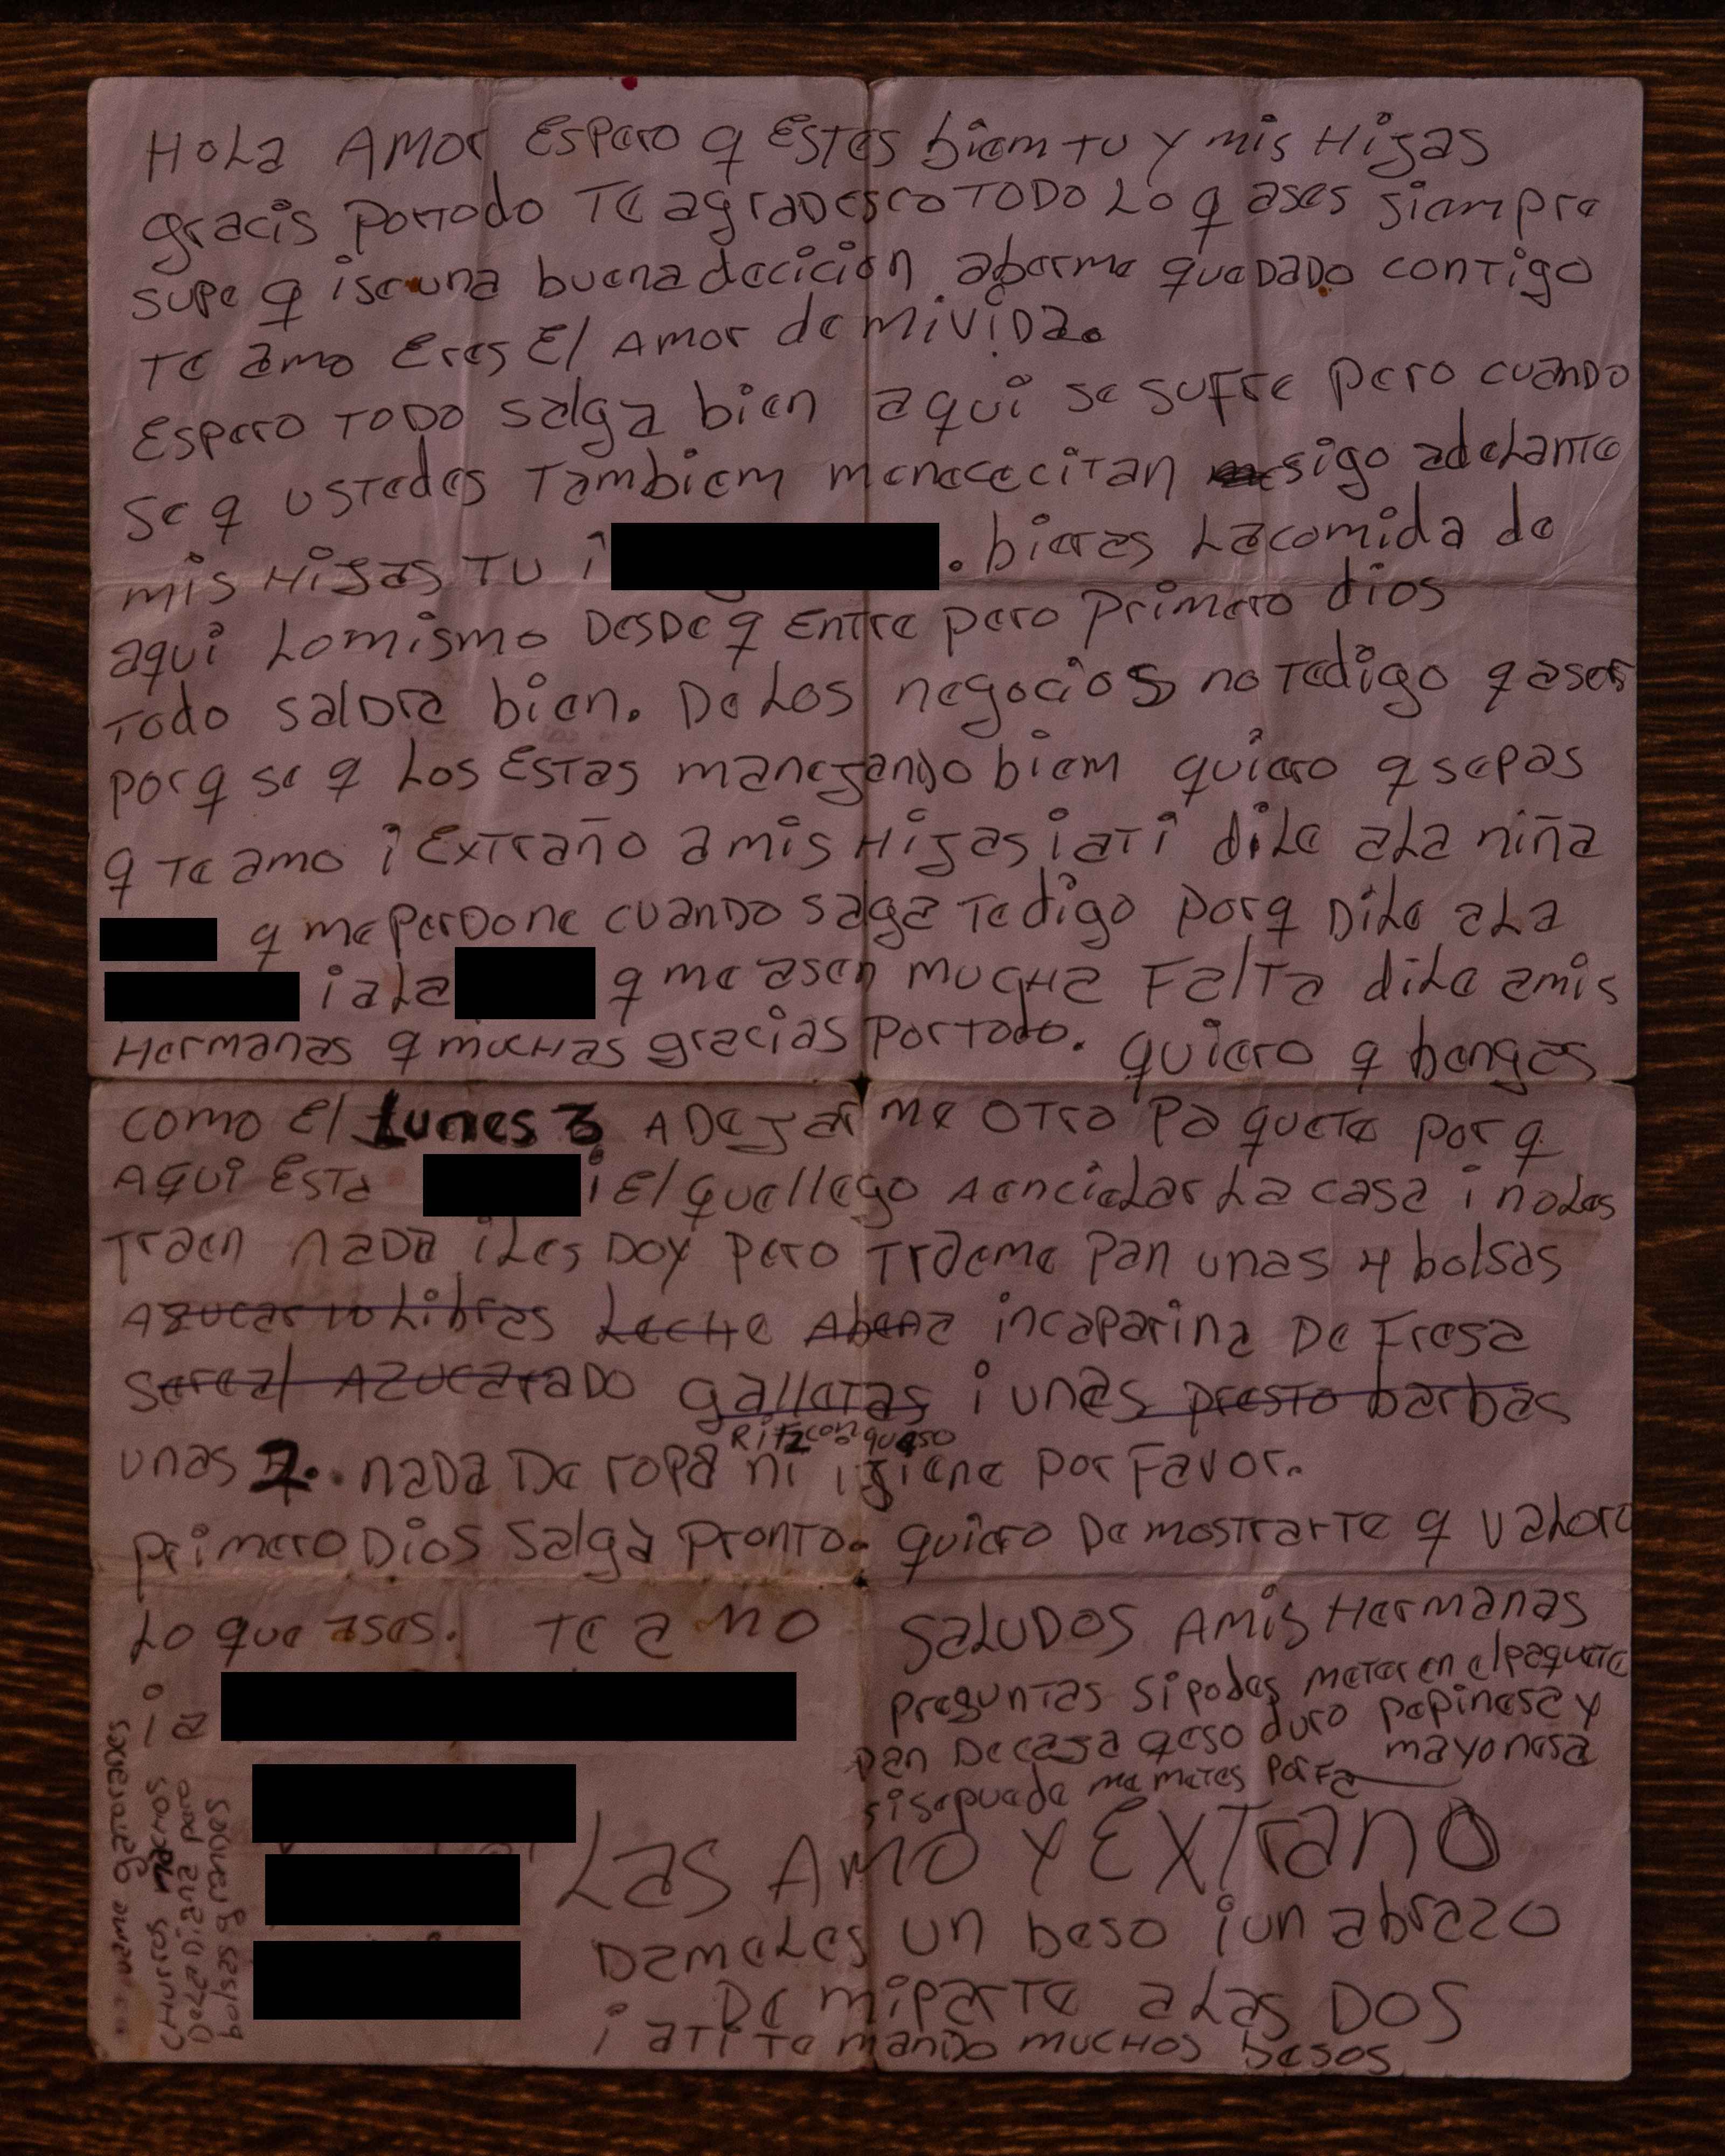 HOLA AMOR ESPERO q ESTES biem TU Y mis Hijas
gracis PORTODO TE agradesco TODO LO q ases siempre
supe q ise una buena decicion aberme quedado contigo
TE amo Eres El AMOR de mi vida.
ESPERO TODO salga bien aqui se sufre pero cuando
se q ustedes Tambiem menececitan sigo adelante
mis Hijas TU i . bieras La comida de
aqui Lo mismo DESDE q ENTRE pero primero dios
Todo saldra bien. De Los negocios no Te digo q aser
porq se q Los ESTas manejando biem quiero q sepas
q Te amo i EXTraño a mis Hijas i a Ti diLe a La niña
q me perdone cuando saga Te digo porq DiLe a La
i a La q me asen mucha Falta diLe a mis
Hermanas q muchas gracias por todo. quiero q bengas
como El Lunes 3 A Dejarme OTro Paquete por q
AQui ESTa i El que llego A encielar La casa i no Les
Traen nada i Les Doy pero Traeme Pan unas 4 bolsas
Azucar 10 Libras Leche Abena incaparina De Fresa
Sereal Azucarado galletas i unas presto barbas
Ritz con queso
unas 2. nada De ropa ni igiene por Favor.
primero Dios Salga Pronto. quiero Demostrarte q valoro
Lo que ases. Te amo
SaLUDOS A mis Hermanas
preguntas si podes meter en el paquete
pan De casa qeso duro pepinesa y
mayonesa
si se puede me metes porfa
Las Amo y EXTraño
Dameles un beso i un abrazo
De mi parte a Las DOS
i a ti te mando muchos besos
gatorades
CHurros nachos
De La Diana pero
bolsas grandes